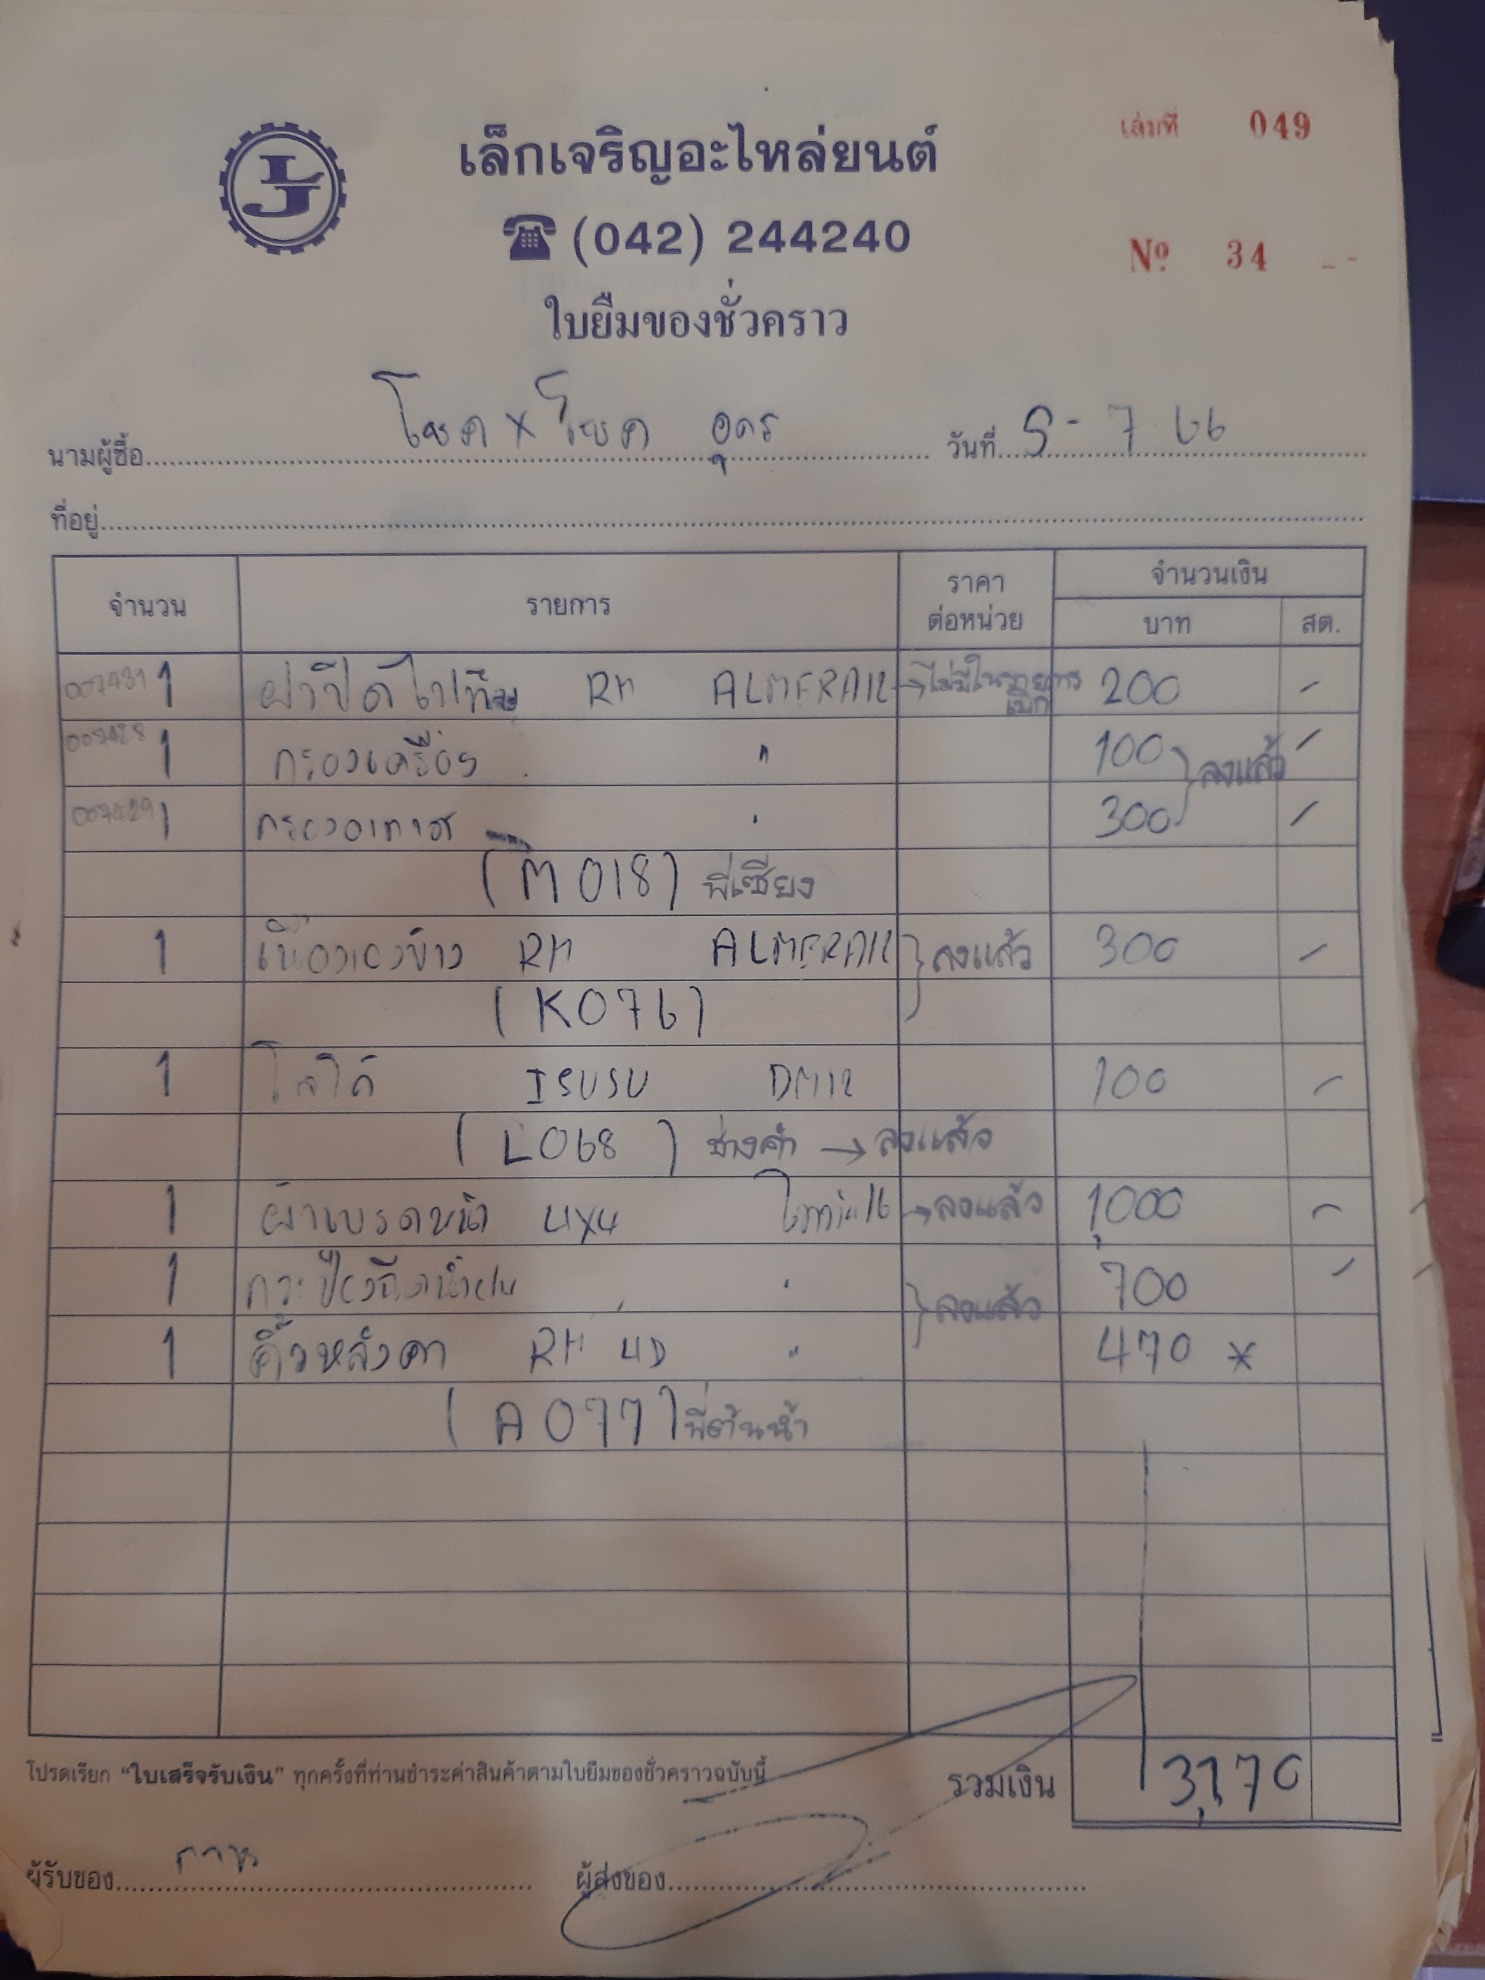 เล่มที่ 049
เล็กเจริญอะไหล่ยนต์
(042) 244240
Nº 34
ใบยืมของชั่วคราว
นามผู้ซื้อ โชค x โชค อุดร วันที่ 5-7 66
ที่อยู่
จำนวน รายการ ราคาต่อหน่วย จำนวนเงิน
บาท สต.
007431 1 ฝาปิดไฟทึบ RH ALMERA12 → ไม่มีในรายการเบิก 200 -
007428 1 กรองเครื่อง " 100 -
ลงแล้ว
007429 1 กรองอากาศ " 300 -
(M018) พี่เซียง
1 RH ALMERA12 ลงแล้ว 300 -
(K076)
1 โลโก้ ISUSU DM12 100 -
(L068) ช่างคำ → ลงแล้ว
1 ผ้าเบรคหน้า 4x4 → ลงแล้ว 1,000 -
1 กระป๋องฉีดน้ำฝน " 700 -
ลงแล้ว
1 คิ้วหลังคา RH 4D " 470 *
(A077) พี่ต้นน้ำ
โปรดเรียก "ใบเสร็จรับเงิน" ทุกครั้งที่ท่านชำระค่าสินค้าตามใบยืมของชั่วคราวฉบับนี้
รวมเงิน 3,170
ผู้รับของ ผู้ส่งของ